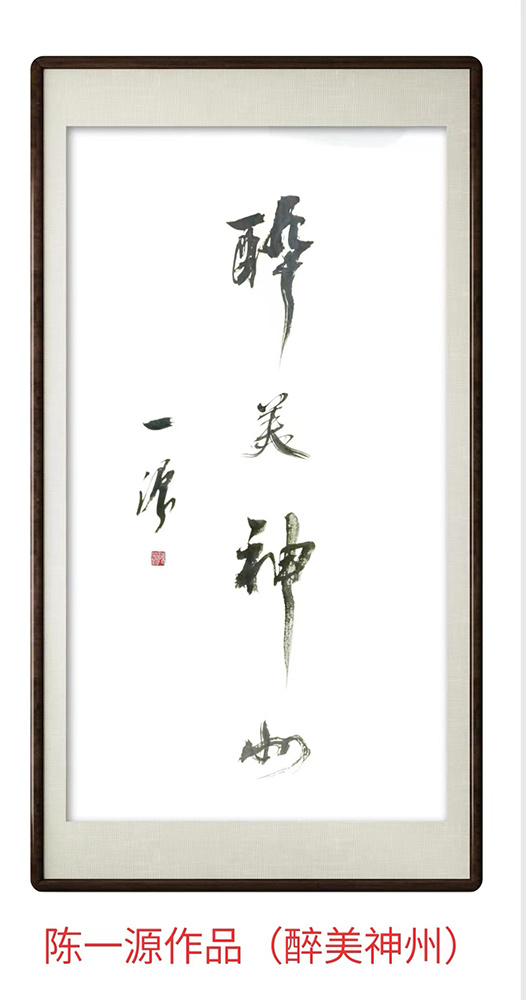 醉美神州
一源
陈一源作品（醉美神州）